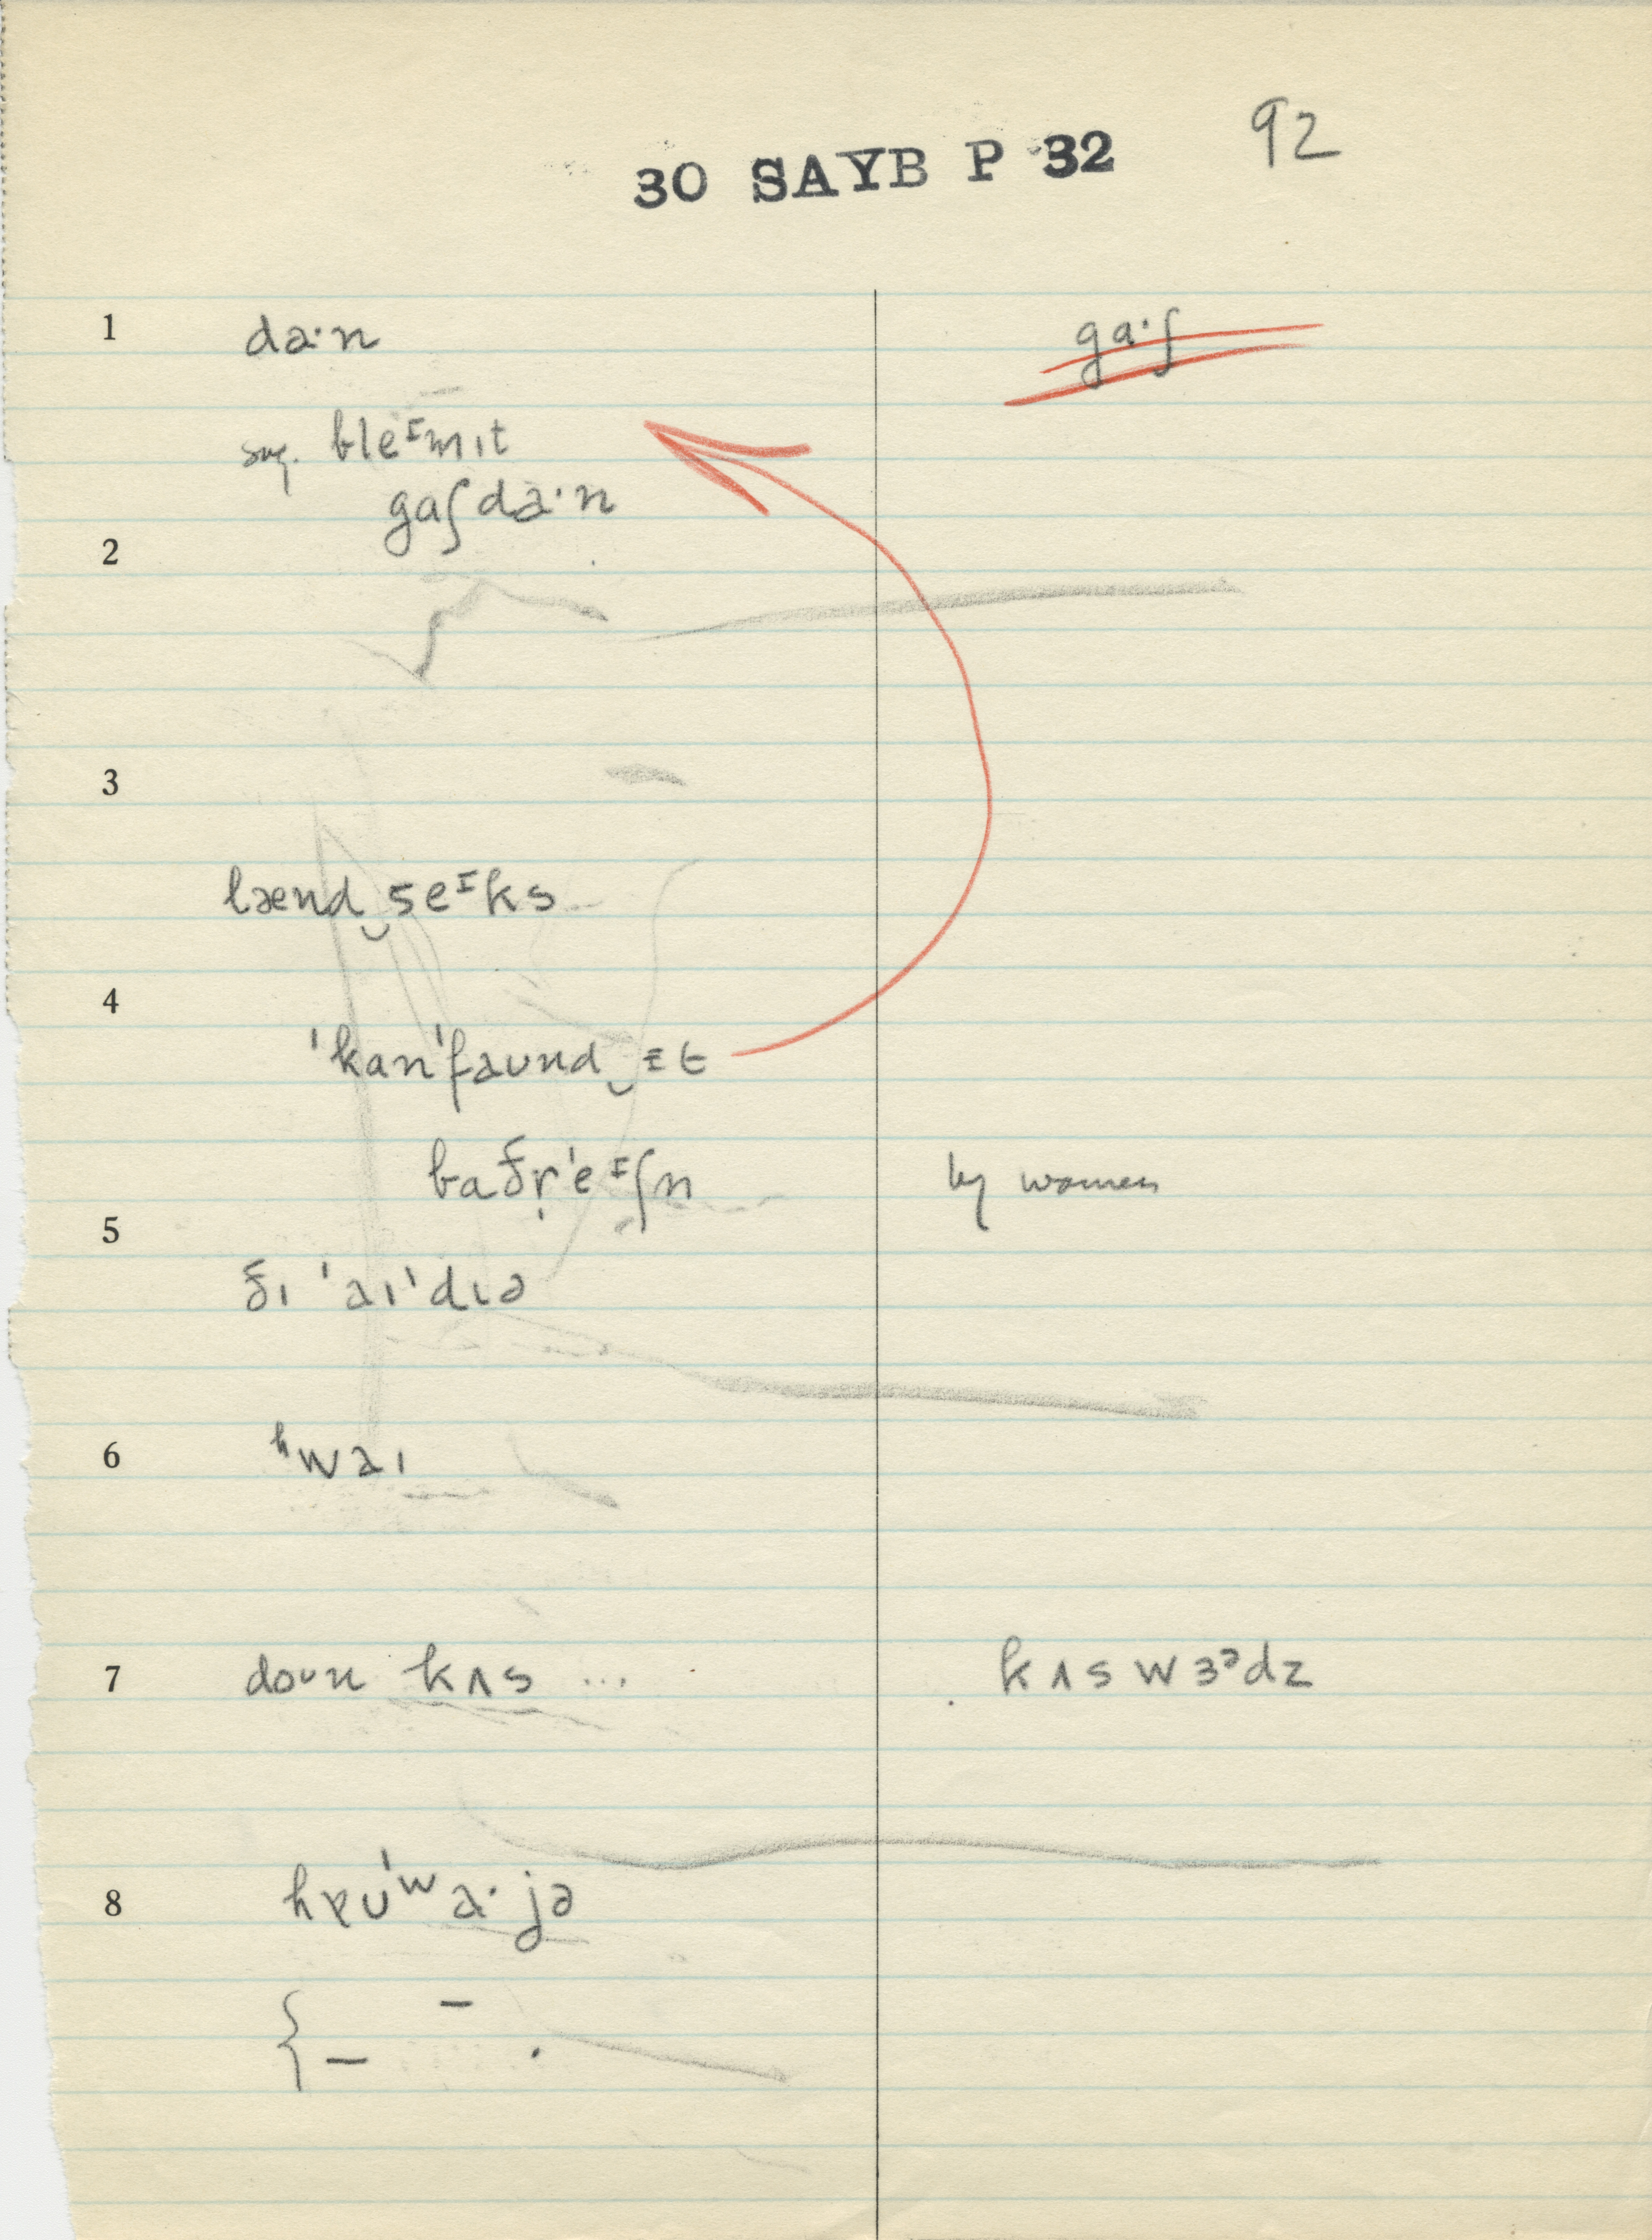 30 SAYB P 32 92
1 da·n ga·ʃ
sug. bleᶦmɪt
gaʃda·n
2
3
lænd‿seᶦks
4
ˈkanˈfaʊnd‿ɪt
baðr̩ˈeᶦʃn by women
5
ðɪ ˈaɪˈdɪə
6 ʰwaɪ
7 doʊn kʌs ... kʌswɜᵊdz
8 hɐʊˈʷa·jə
{ – – .